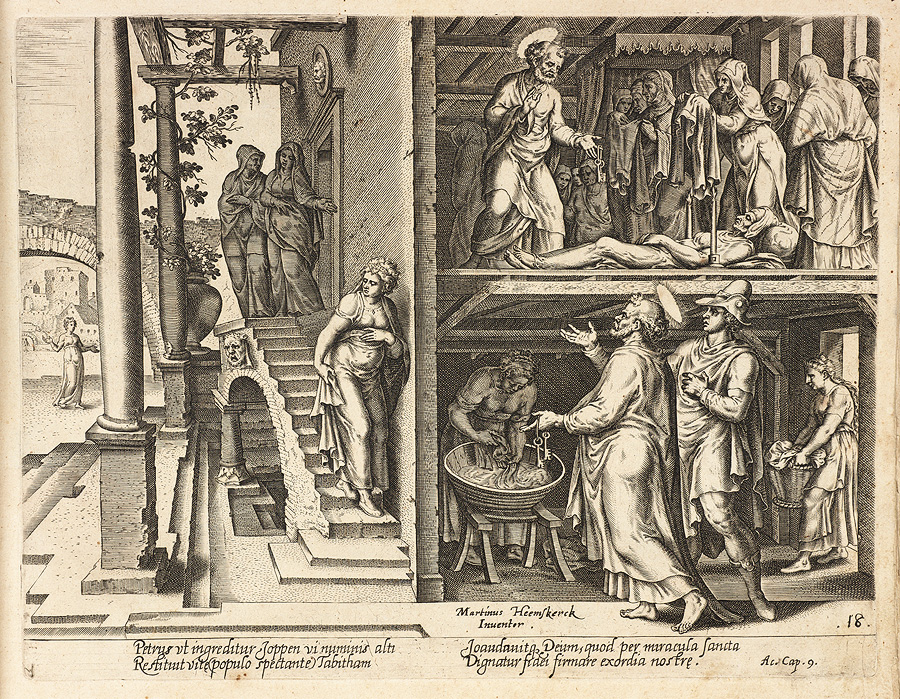 Martinus Heemskerck
Inventor.
18.
Petrus ut ingreditur Joppen vi numinis alti
Restituit vitę populo spectante Tabitham
Joaudauitq, Deum, quod per miracula sancta
Dignatur fidei firmare exordia nostrę.
Ac. Cap. 9.